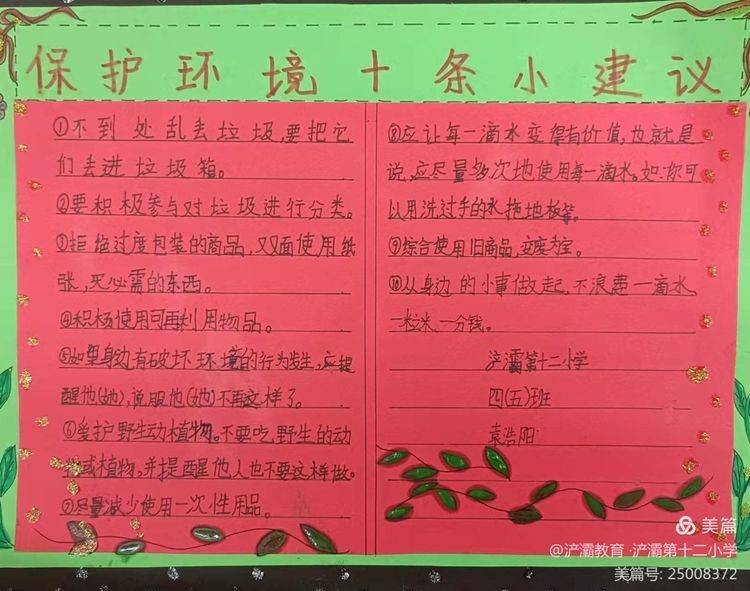 保护环境十条小建议
①不到处乱丢垃圾,要把它
们丢进垃圾箱。
②要积极参与对垃圾进行分类。
③拒绝过度包装的商品,双面使用纸
张,买必需的东西。
④积极使用可再利用物品。
⑤如果身边有破坏环境的行为发生,应提
醒他(她),说服他(她)不再这样了。
⑥爱护野生动植物。不要吃野生的动
物或植物,并提醒他人也不要这样做。
⑦尽量减少使用一次性用品。
⑧应让每一滴水变得有价值,也就是
说,应尽量多次地使用每一滴水。如:你可
以用洗过手的水拖地板等。
⑨综合使用旧商品,变废为宝。
⑩从身边的小事做起,不浪费一滴水
一粒米、一分钱。
浐灞第十二小学
四(五)班
袁浩阳
美篇
@浐灞教育·浐灞第十二小学
美篇号: 25008372